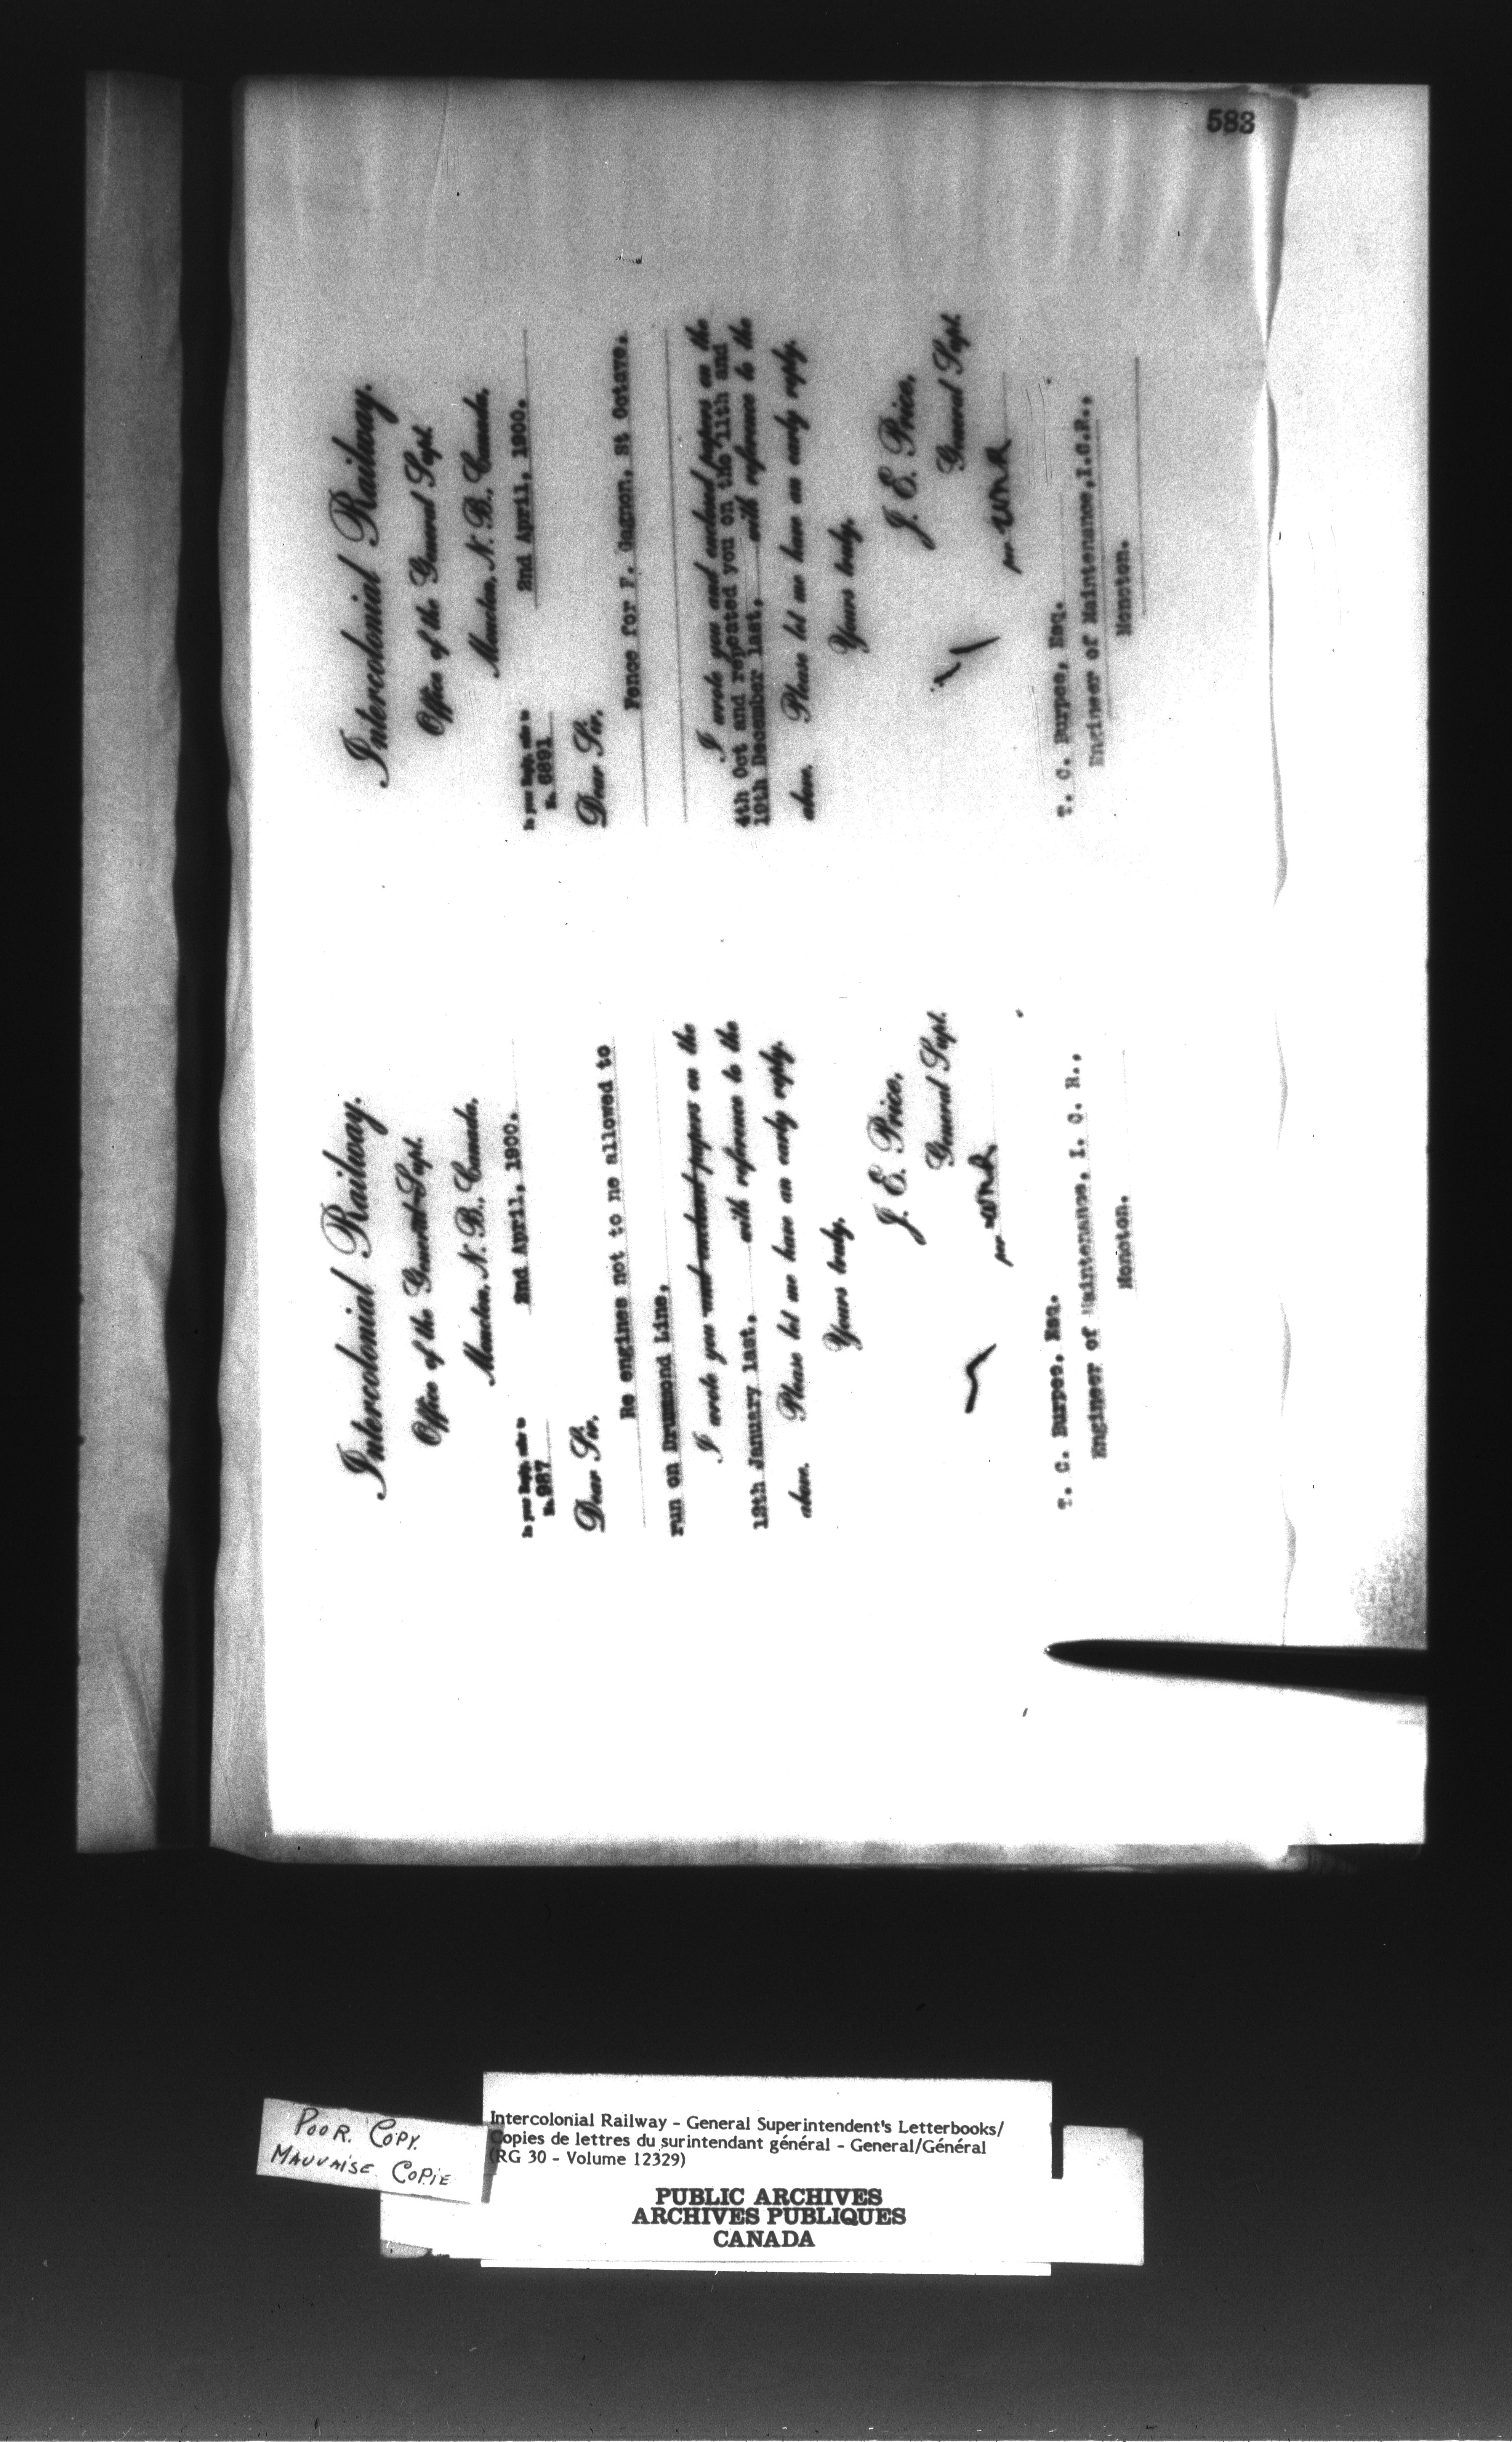 588
Intercolonial Railway.
Office of the General Supt.
Moncton, N. B., Canada.
2nd April, 1900.
In your Reply, refer to
No. 987
Dear Sir,
Re engines not to ne allowed to
run on Drummond Line,
I wrote you and enclosed papers on the
12th January last, with reference to the
above. Please let me have an early reply.
Yours truly,
J. E. Price,
General Supt.
per
T. C. Burpee, Esq.
Engineer of Maintenance, I. C. R.,
Moncton.
Intercolonial Railway.
Office of the General Supt.
Moncton, N. B., Canada.
2nd April, 1900.
In your Reply, refer to
No. 6891
Dear Sir,
Fence for F. Gagnon, St Octave.
I wrote you and enclosed papers on the
4th Oct and repeated you on the 11th and
19th December last, with reference to the
above. Please let me have an early reply.
Yours truly,
J. E. Price,
General Supt.
per
T. C. Burpee, Esq.
Engineer of Maintenance,I.C.R.,
Moncton.
POOR COPY
MAUVAISE COPIE
Intercolonial Railway - General Superintendent's Letterbooks/
Copies de lettres du surintendant général - General/Général
(RG 30 - Volume 12329)
PUBLIC ARCHIVES
ARCHIVES PUBLIQUES
CANADA